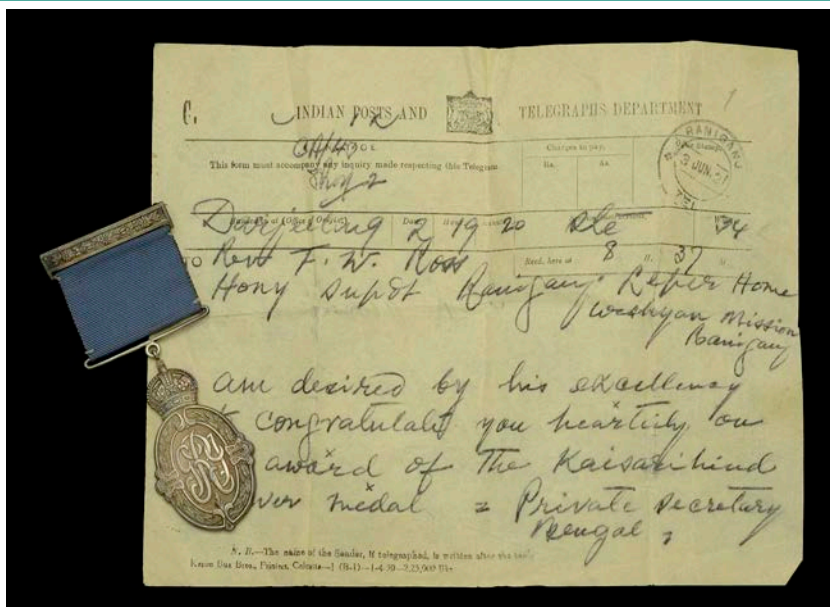 C.
INDIAN POSTS AND TELEGRAPHS DEPARTMENT
This form must accompany any inquiry made respecting this Telegram
Charges to pay.
Rs. As.
RANIGANJ
3 JUN.
Darjeeling 2 19 20 Ste 34
TO Rev F. W. Ross
Recd. here at 8 H. 37 M.
Hony Supdt Raniganj Leper Home
Wesleyan Mission
Raniganj
am desired by his excellency
congratulate you heartily on
award of The Kaisarihind
ver medal = Private secretary
Bengal
N. B.—The name of the Sender, if telegraphed, is written after the text.
Bros., Printers, Calcutta—